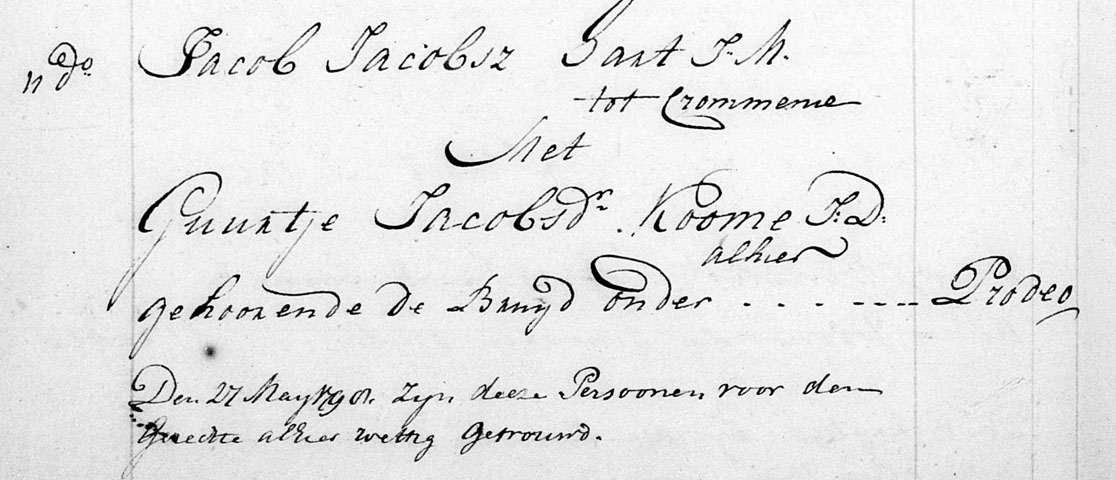 n do Jacob Jacobsz Gart J: M.
tot Crommenie
Met
Guurtje Jacobsdr. Koome J: D:
alhier
gehoorende de Bruyd onder . . . . . - - - - Prodeo
Den 27 May 1790. zyn deeze Persoonen voor den
Gerechte alhier wettig Getrouwd.